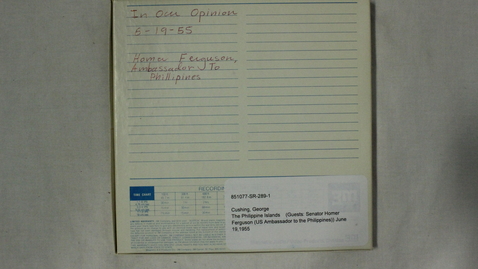 In Our Opinion
5-19-55
Homer Ferguson,
Ambassador To
Phillipines
RECORDING
851077-SR-289-1
Cushing, George
The Philippine Islands (Guests: Senator Homer
Ferguson (US Ambassador to the Philippines)) June
19,1955